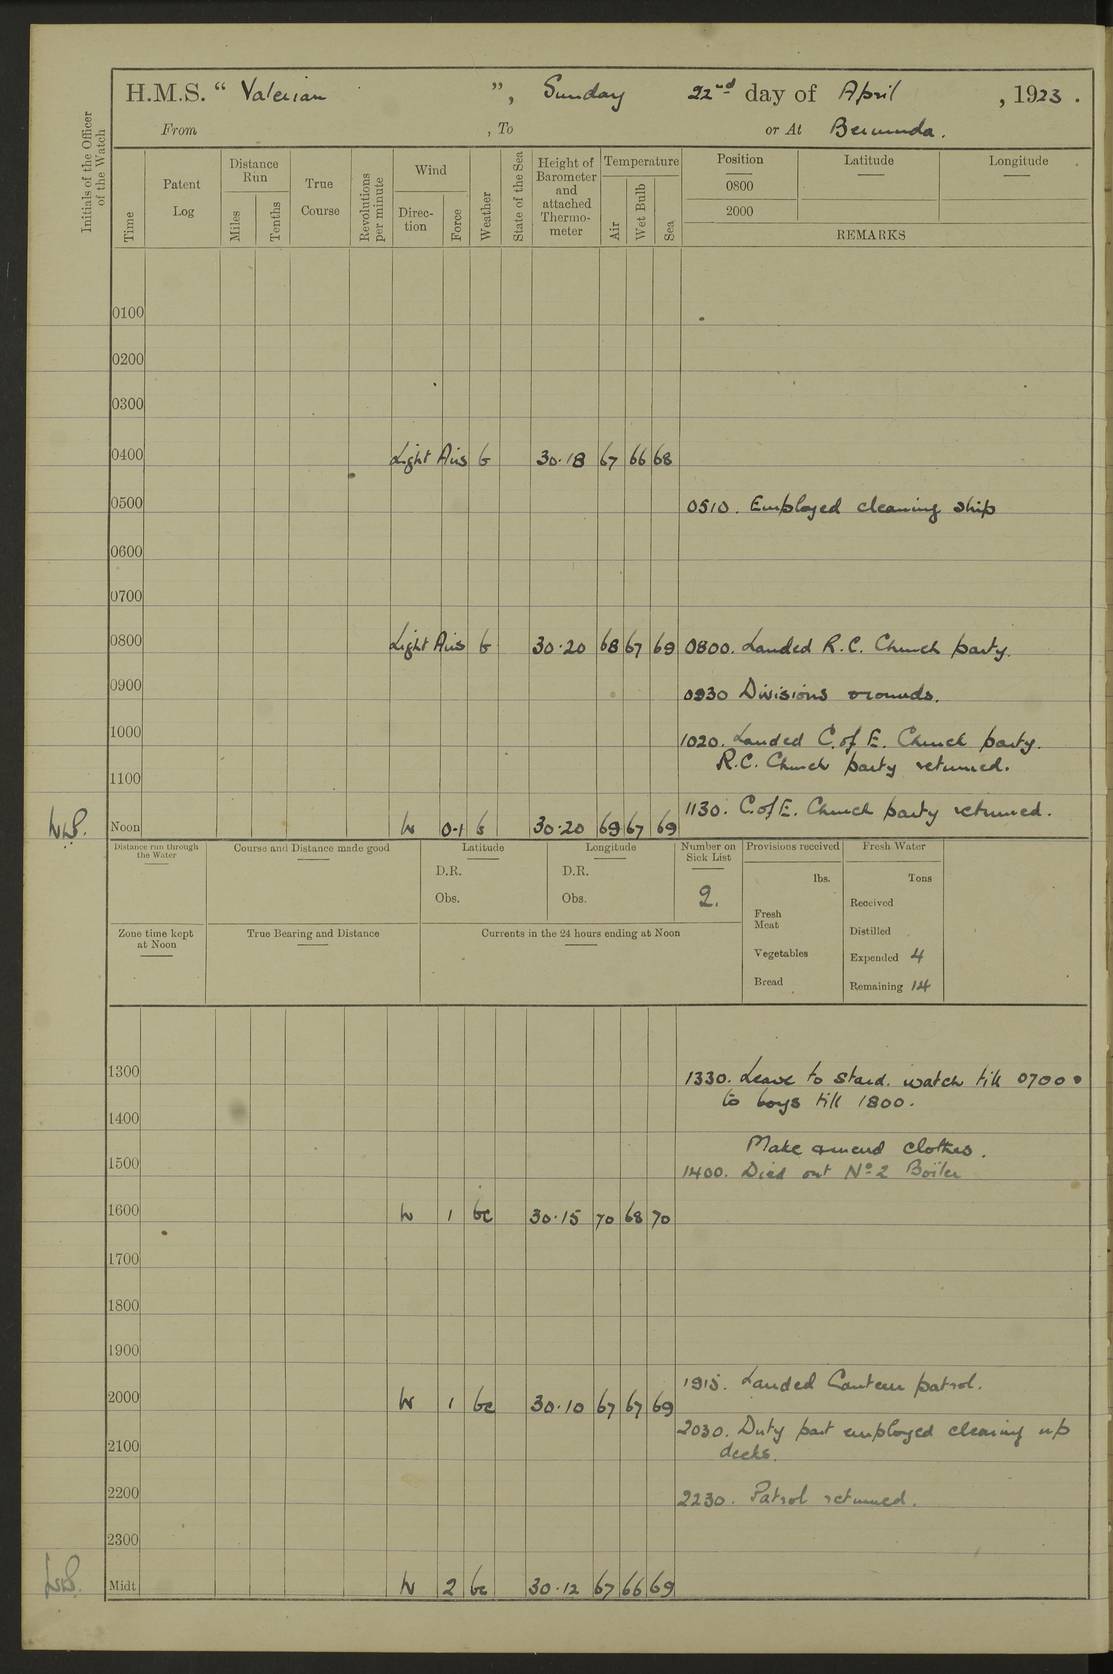 H.M.S. " Valerian ", Sunday 22nd day of April, 1923.
From , To or At Bermuda.
Initials of the Officer
of the Watch
Time
Patent
Log
Distance
Run
Miles
Tenths
True
Course
Revolutions
per minute
Wind
Direc-
tion
Force
Weather
State of the Sea
Height of
Barometer
and
attached
Thermo-
meter
Temperature
Air
Wet Bulb
Sea
Position Latitude Longitude
0800
2000
REMARKS
0100
0200
0300
0400 Light Airs b 30.18 67 66 68
0500 0510. Employed cleaning ship
0600
0700
0800 Light Airs b 30.20 68 67 69 0800. Landed R.C. Church party.
0900 0930 Divisions rounds.
1000 1020. Landed C. of E. Church party.
R.C. Church party returned.
1100
1130. C. of E. Church party returned.
Noon W 0-1 b 30.20 69 67 69
Distance run through
the Water
Course and Distance made good
Latitude
D.R.
Obs.
Longitude
D.R.
Obs.
Number on
Sick List
2.
Provisions received
lbs.
Fresh
Meat
Vegetables
Bread
Fresh Water
Tons
Received
Distilled
Expended 4
Remaining 14
Zone time kept
at Noon
True Bearing and Distance
Currents in the 24 hours ending at Noon
1300 1330. Leave to Stard. watch till 0700
to boys till 1800.
1400
Make & mend clothes.
1500 1400. Died out No 2 Boiler
1600 W 1 bc 30.15 70 68 70
1700
1800
1900
1915. Landed Canteen patrol.
2000 W 1 bc 30.10 67 67 69
2030. Duty part employed clearing up
2100 decks.
2200 2230. Patrol returned.
2300
Midt W 2 bc 30.12 67 66 69